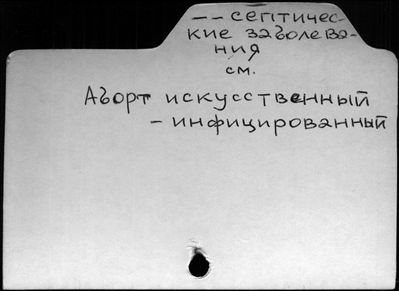 -- септичес-
кие заболева-
ния
см.
Аборт искусственный
- инфицированный